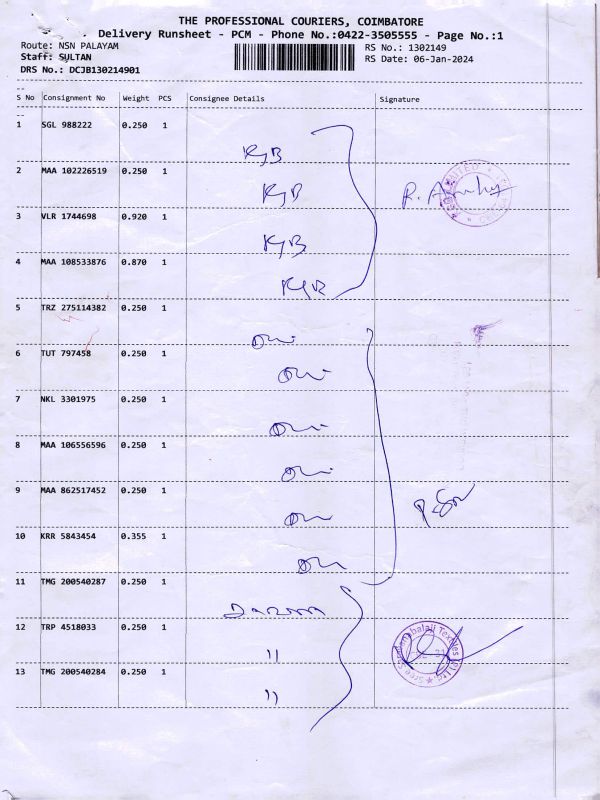 THE PROFESSIONAL COURIERS, COIMBATORE
Delivery Runsheet - PCM - Phone No.:0422-3505555 - Page No.:1
Route: NSN PALAYAM RS No.: 1302149
Staff: SULTAN RS Date: 06-Jan-2024
DRS No.: DCJB130214901
S No Consignment No Weight PCS Consignee Details Signature
1 SGL 988222 0.250 1
KgB
2 MAA 102226519 0.250 1
KgB
3 VLR 1744698 0.920 1
KgB
4 MAA 108533876 0.870 1
KgB
5 TRZ 275114382 0.250 1
6 TUT 797458 0.250 1
7 NKL 3301975 0.250 1
8 MAA 106556596 0.250 1
9 MAA 862517452 0.250 1
10 KRR 5843454 0.355 1
11 TMG 200540287 0.250 1
12 TRP 4518033 0.250 1
"
13 TMG 200540284 0.250 1
"